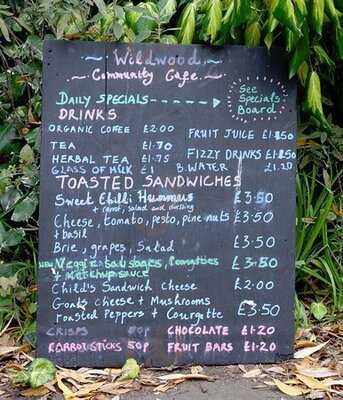 ~ Wildwood ~
~ Community Cafe. ~
DAILY SPECIALS
See
Specials
Board
DRINKS
ORGANIC COFFEE £2.00
FRUIT JUICE £1.50
TEA £1.70
FIZZY DRINKS £1.50
HERBAL TEA £1.75
GLASS OF MILK £1
B.WATER £1.20
TOASTED SANDWICHES
Sweet Chilli Hummus £3.50
+ carrot, salad and dressing
Cheese, tomato, pesto, pine nuts £3.50
+ basil
Brie, grapes, Salad £3.50
NEW Veggie sausages, tomatoes £3.50
+ Ketchup sauce
Child's Sandwich Cheese £2.00
Goats Cheese + Mushrooms
roasted Peppers + Courgette £3.50
CRISPS 50P
CHOCOLATE £1.20
CARROT STICKS 50P
FRUIT BARS £1.20